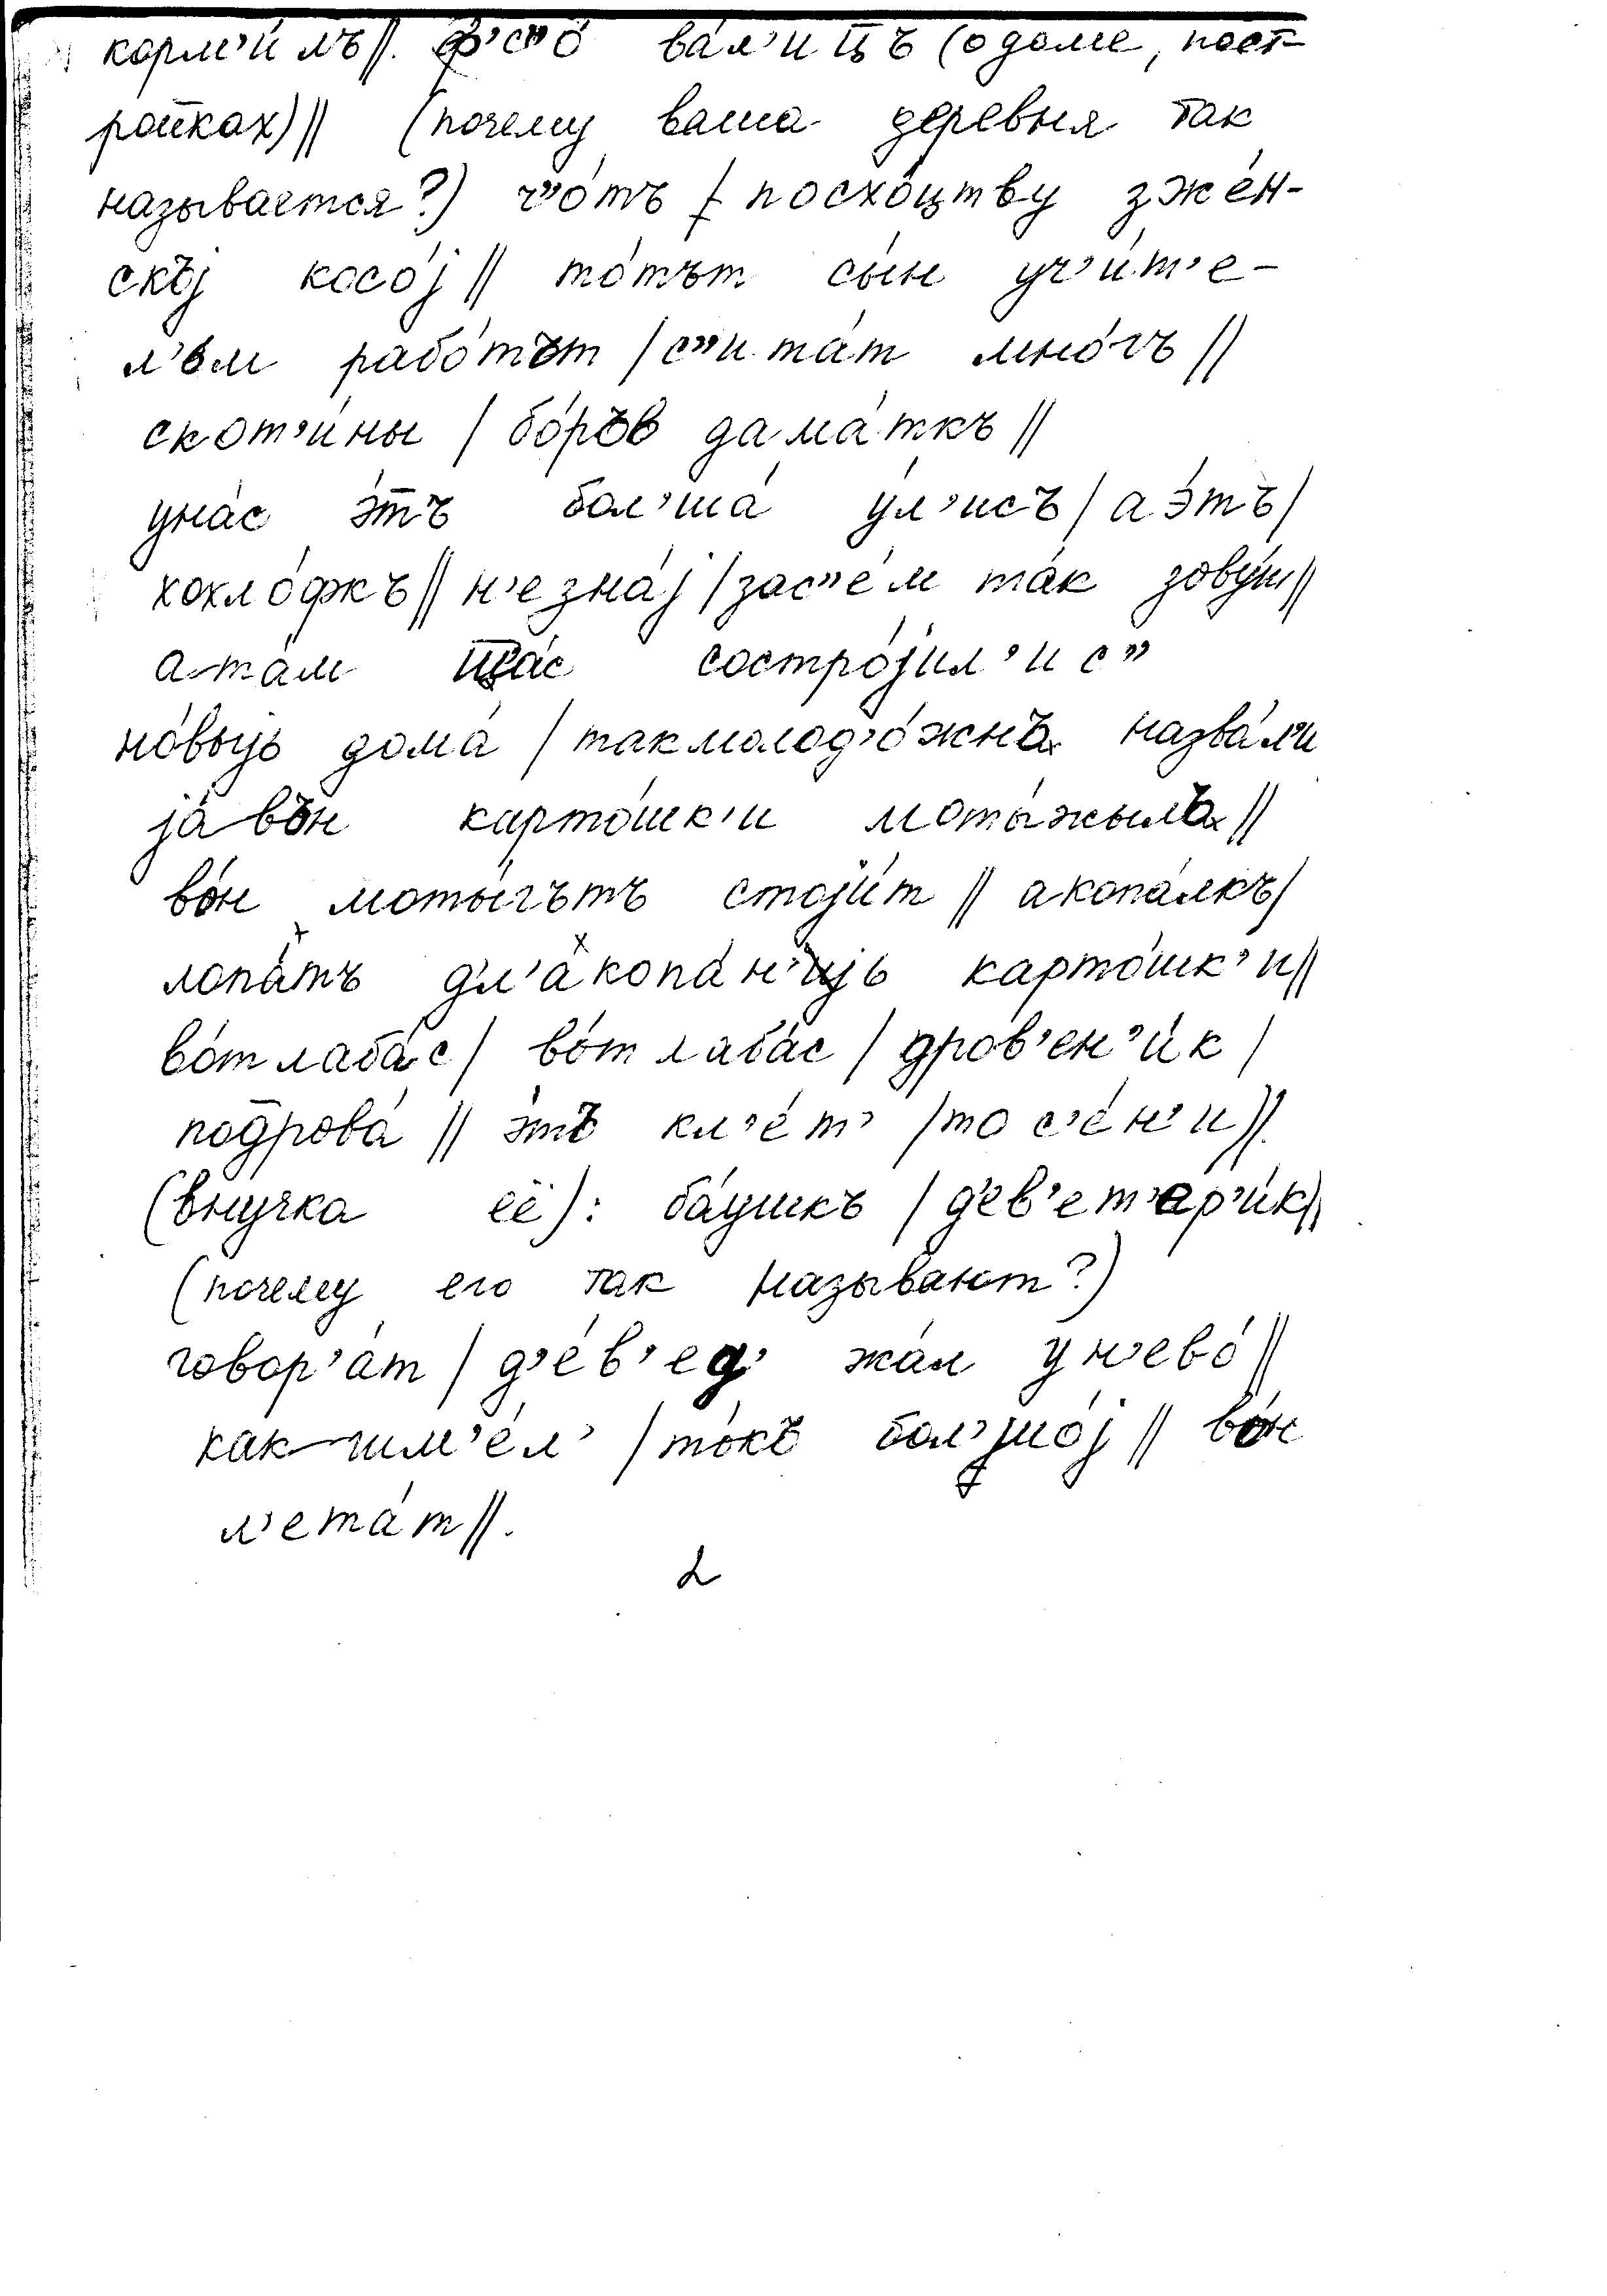 корм’и́лъ//. ф’с”о́ ва́л’иц̅ъ (о доме, пост-
ройках)// (почему ваша деревня так
называется?) ч”о́тъ / посхо́цтву зже́н-
скъj косо́j // то́тът сы́н уч’и́т’е-
л’ъм рабо́тът / с”ита́т мно́гъ //
скот’и́ны / бо́ръв дама́ткъ //
уна́с э́тъ бол’ша́ у́л’исъ / аэ́тъ /
хохло́фкъ // н’езна́j / зас”е́м та́к зову́т //
ата́м ща́с состро́jил’ис”
но́выjь дома́ / такмолод’о́жнъ назва́л’и
jа́ въ́н карто́шк’и моты́жылъ //
во́н моты́гътъ стоjи́т // акопа́лкъ /
лопа́тъ дл’акопа́н’иjь карто́шк’и //
во́т лаба́с / во́т лаба́с / дров’ен’и́к /
подрова́ // э́тъ кл’е́т’ / то с’е́н’и //.
(внучка её): ба́ушкъ / д’ев’ет’ер’и́к //
(почему его так называют?)
говор’а́т / д’е́в’ед’ жа́л ун’ево́ //
как шм’е́л’ / то́къ бол’шо́j // во́н
л’ета́т //.
2